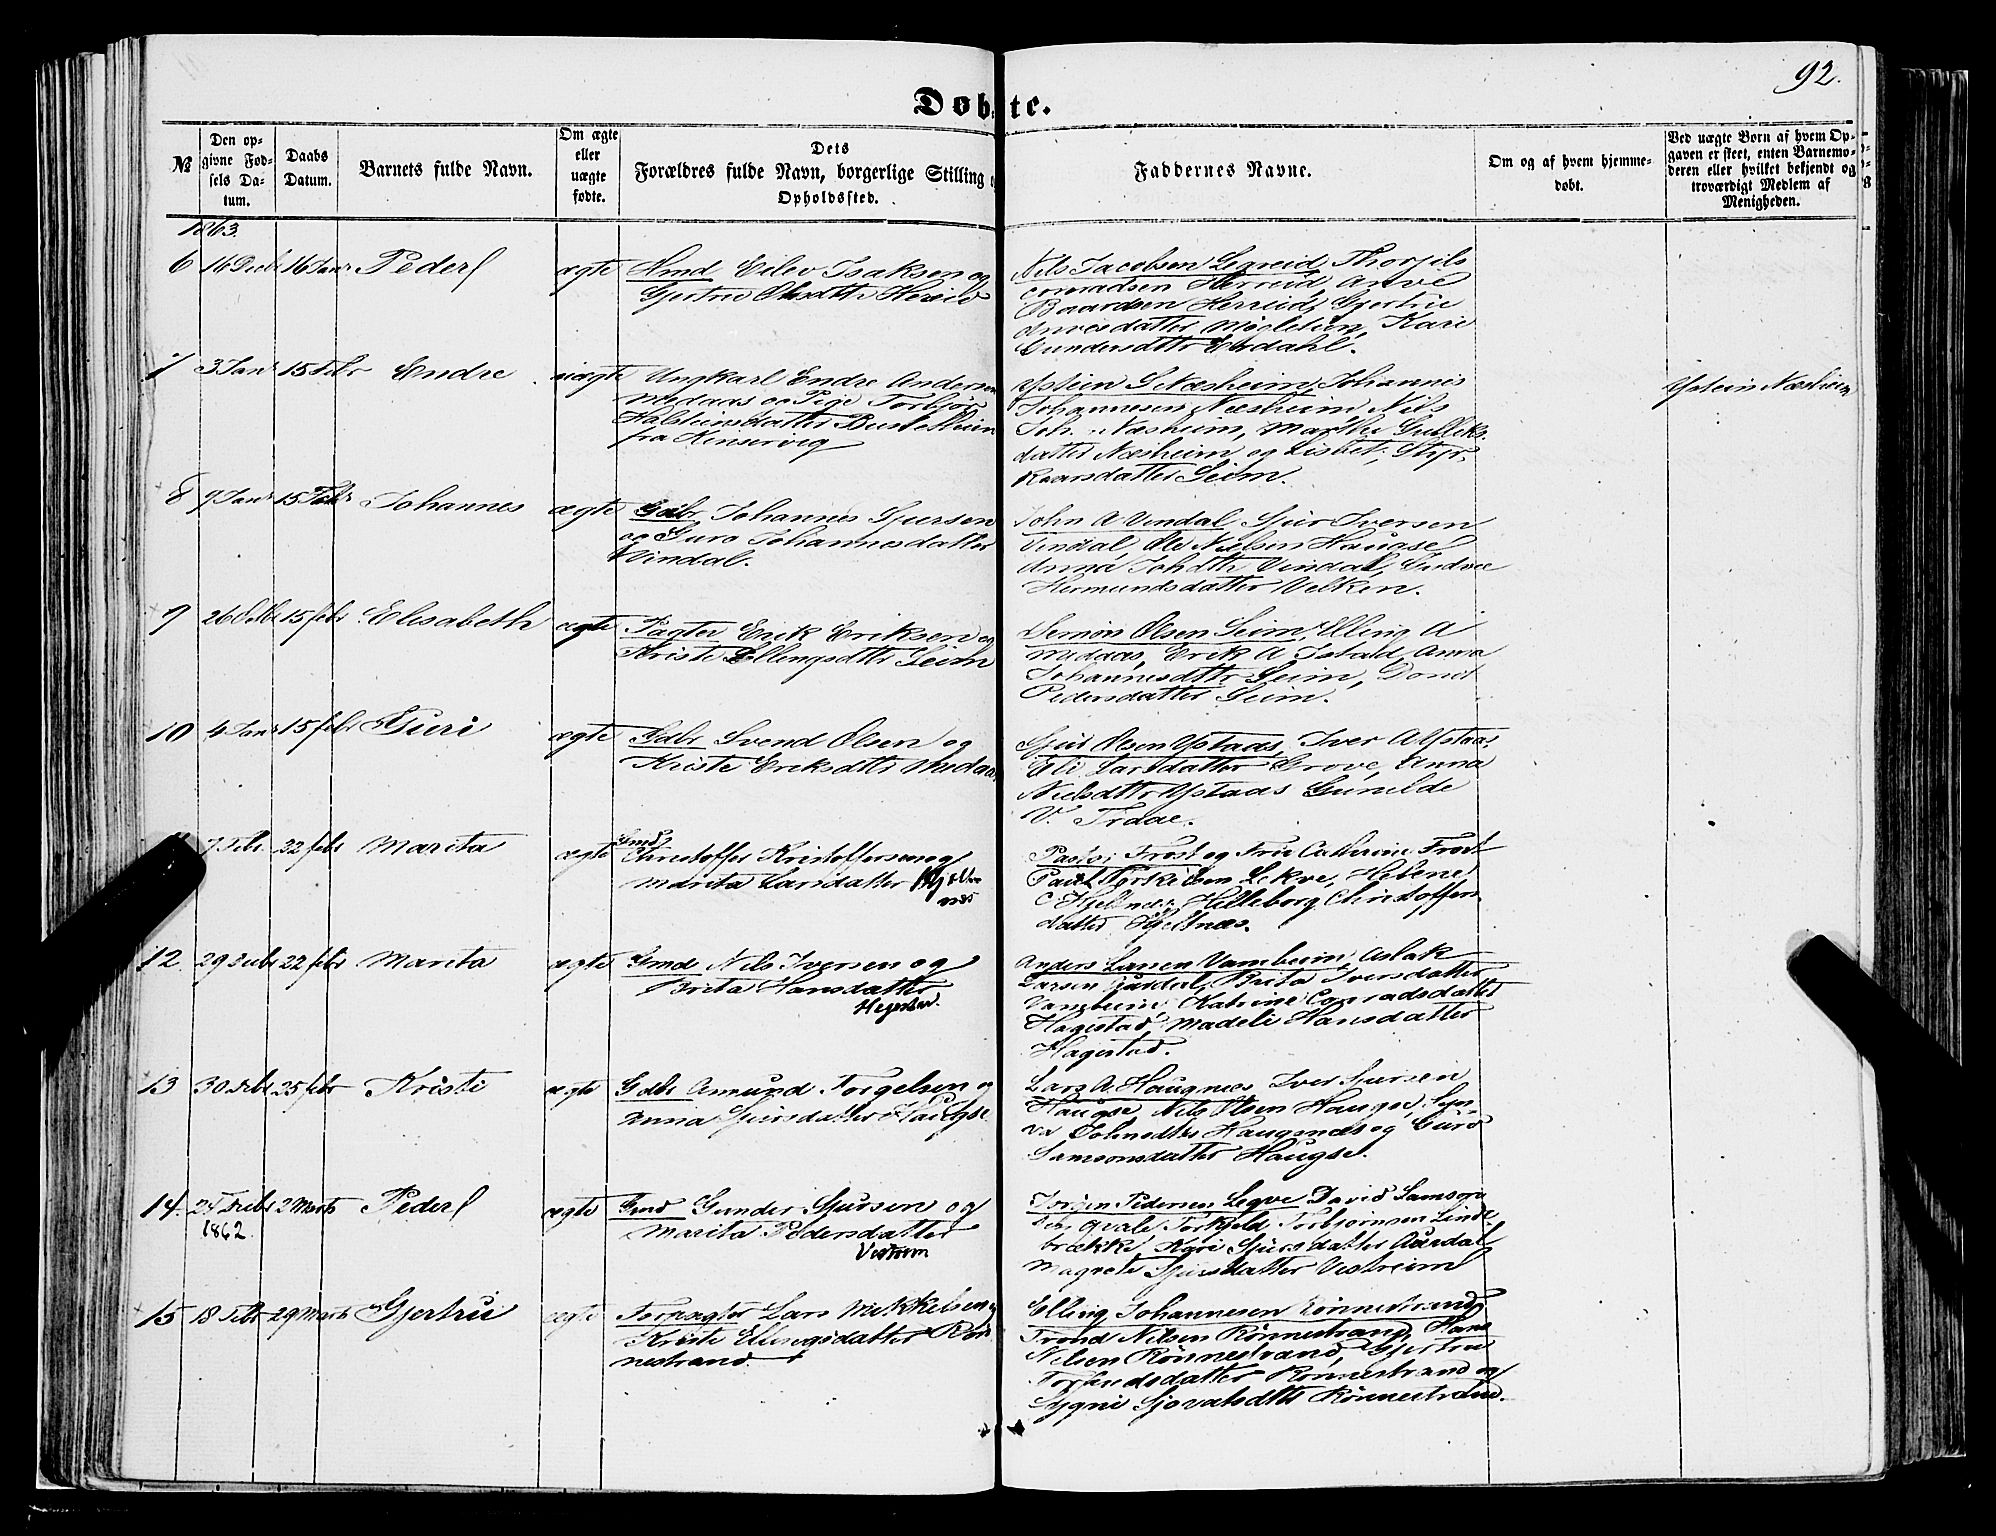 92.
Døbte.
№
Den op-
givne Fød-
sels Da-
tum.
Daabs
Datum.
Barnets fulde Navn.
Om ægte
eller
uægte
fødte.
Dets
Forældres fulde Navn, borgerlige Stilling
Opholdssted.
Faddernes Navne.
Om og af hvem hjemme-
døbt.
Ved uægte Børn af hvem Op-
gaven er skeet, enten Barnemo-
deren eller hvilket bekjendt og
troværdigt Medlem af
Menigheden.
1863.
6 16 Janr Peder ægte Hmd Eilev Isaksen og
Gjertrue Olsdtr Hereid
Nils Jacobsen Legreid, Thorgils
Conradsen Herreid, Anve
Baardsen Herreid, Gjertrue
datter Kari
Gundersdttr Erdahl.
7 3 Janr 15 Febr Endre uægte Ungkarl Endre Andersen
Medaas og Pige Torbjør
Halsteinsdatter Bustetein
fra Kinservig
Ystein S Næsheim, Johannes
Johannesen Næsheim, Nils
Joh. Næsheim, Marthe Gulleks-
datter Næsheim og Lisbet, Styr-
kaarsdatter Seim.
Ystein Næsheim
8 9 Janr 15 Febr Johannes ægte Gdbr Johannes Sjursen
og Guro Johannesdatter
Vindal.
John A Vindal, Sjur Iversen
Vindal, Ole Nielsen Haugse
Anna Johdtr Vindal,
Hermundsdatter Velken.
9 26 15 febr Elisabeth ægte Pagter Erik Eriksen og
Kriste Ellingsdtr Seim
Simon Olsen Seim, Elling A
Medaas, Erik A Anna
Johannesdttr Seim,
Pedersdatter Seim.
10 4 Janr 15 febr Guri ægte Gdbr Svend Olsen og
Kriste Eriksdtr Medaas
Sjur Olsen Ystaas, Iver A Ystaas,
Eli Larsdatter Grove, Anna
Nielsdttr Ystaas Gunilde
V.
7 Febr 22 febr Marita ægte Hmd
Christoffer Kristoffersen og
Marita Larsdatter Kjelt-
næs
Pastor Frost og Frue Cathrine Frost
Paul Torkelsen Lekve, Helene
C Kjeltnæs, Hilleborg Christoffers-
datter Kjeltnæs.
12 29 22 febr Marita ægte Hmd Nils Iversen og
Brita Hansdatter
Anders Larsen Vambheim, Aslak
Larsen Brita Iversdatter
Vambheim, Katrine Conradsdatter
Hagestad, Madeli Hansdatter
Hagestad.
13 30 25 febr Kriste ægte Gdbr Amund Torgelsen og
Anna Sjursdatter Haugse.
Lars A. Haugnæs, Iver Sjursen
Haugse, Nils Olsen Haugse, Syn-
va Johnsdtr Haugnæs og Guro
Samsonsdatter Haugse.
14. 24 Decbr 2 Marts Peder ægte Hmd Gunder Sjursen og
1862.
Marita Pedersdatter
Jørgen Pedersen Legve David Samson-
sen Qvale, Torkjeld Torbjørnsen Linde-
brække, Kari Sjursdatter Aurdal
Magrete Sjursdatter Vestreim
15 18 Febr 29 Marts Gjertrue ægte Forpagter Lars Mikkelsen og
Kriste Ellingsdatter Røn-
nestrand.
Elling Johannesen Rönnestrand,
Trond Nilsen Rönnestrand, Hans
Nilsen Rönnestrand, Gjertrue
datter Rönnestrand og
Sygni Sjovatsdtr Rönnestrand.